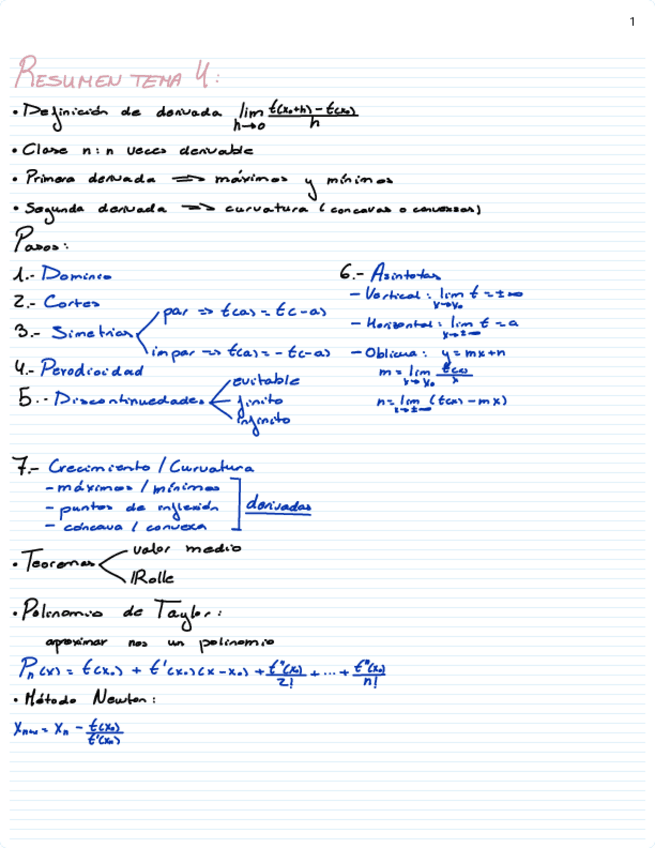 1
RESUMEN TEMA 4:
• Definición de derivada lim h→0 f(x₀+h) - f(x₀) / h
• Clase n: n veces derivable
• Primera derivada ⇒ máximos y mínimos
• Segunda derivada ⇒ curvatura (concavas o convexas)
Pasos:
1.- Dominio
2.- Cortes
3.- Simetrias
par ⇒ f(a) = f(-a)
impar ⇒ f(a) = - f(-a)
4.- Perodicidad
5.- Discontinuedades
evitable
finito
infinito
6.- Asintotas
- Vertical: lim x→x₀ f = ±∞
- Horizontal: lim x→±∞ f = a
- Oblicua: y = mx+n
m = lim x→x₀ f(x) / x
n = lim x→±∞ (f(x) - mx)
7.- Crecimiento / Curvatura
- máximos / mínimos
- puntos de inflexión
- cóncava / convexa
derivadas
• Teoremas
valor medio
Rolle
• Polinomio de Taylor:
aproximar nos un polinomio
Pₙ(x) = f(x₀) + f'(x₀)(x-x₀) + f''(x₀) / 2! + ... + fⁿ(x₀) / n!
• Método Newton:
xₙ₊₁ = xₙ - f(xₙ) / f'(xₙ)